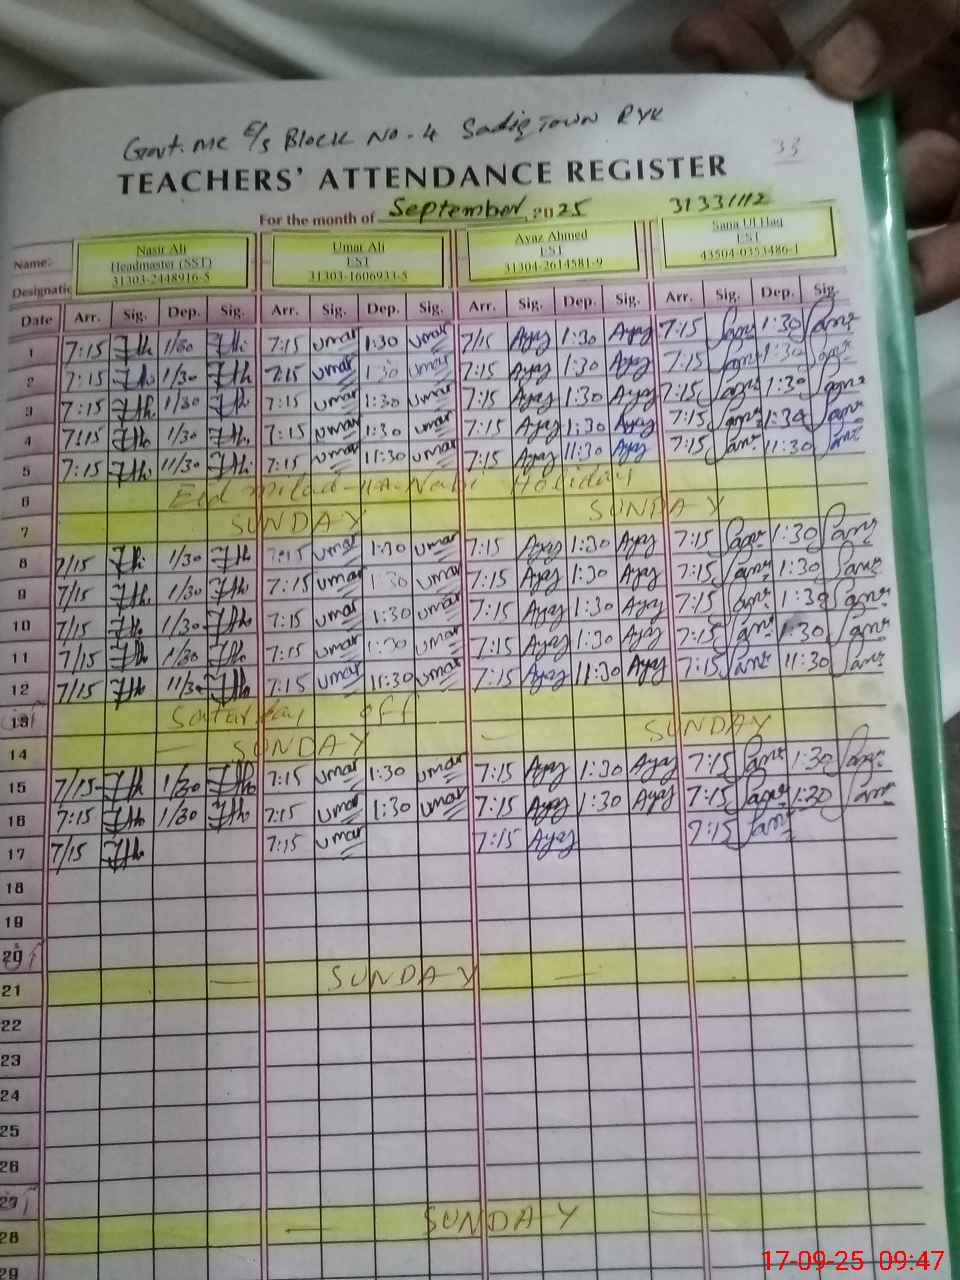 Govt. MC E/S Block No-4 Sadiq Town RYK
33
TEACHERS' ATTENDANCE REGISTER
For the month of September, 2025 31331112
Name:- Nasir Ali Umar Ali Ayaz Ahmed Sana Ul Haq
Designatio Headmaster (SST) EST EST EST
31303-2448916-5 31303-1606933-5 31304-2614581-9 43504-0353486-1
Date Arr. Sig. Dep. Sig. Arr. Sig. Dep. Sig. Arr. Sig. Dep. Sig. Arr. Sig. Dep. Sig.
1 7:15 1/30 7:15 umar 1:30 umar 7/15 Ayaz 1:30 Ayaz 7:15 1:30
2 7:15 1/30 7:15 umar 1:30 umar 7:15 Ayaz 1:30 Ayaz 7:15 1:30
3 7:15 1/30 7:15 umar 1:30 umar 7:15 Ayaz 1:30 Ayaz 7:15 1:30
4 7:15 1/30 7:15 umar 1:30 umar 7:15 Ayaz 1:30 Ayaz 7:15 1:30
5 7:15 11/30 7:15 umar 11:30 umar 7:15 Ayaz 11:30 Ayaz 7:15 11:30
6 Eid Milad-un-Nabi Holiday
7 SUNDAY SUNDAY
8 7/15 1/30 7:15 umar 1:30 umar 7:15 Ayaz 1:30 Ayaz 7:15 1:30
9 7/15 1/30 7:15 umar 1:30 umar 7:15 Ayaz 1:30 Ayaz 7:15 1:30
10 7/15 1/30 7:15 umar 1:30 umar 7:15 Ayaz 1:30 Ayaz 7:15 1:30
11 7/15 1/30 7:15 umar 1:30 umar 7:15 Ayaz 1:30 Ayaz 7:15 1:30
12 7/15 11/30 7:15 umar 11:30 umar 7:15 Ayaz 11:30 Ayaz 7:15 11:30
13 Saturday off
14 — SUNDAY — SUNDAY
15 7/15 1/30 7:15 umar 1:30 umar 7:15 Ayaz 1:30 Ayaz 7:15 1:30
16 7:15 1/30 7:15 umar 1:30 umar 7:15 Ayaz 1:30 Ayaz 7:15 1:30
17 7/15 7:15 umar 7:15 Ayaz 7:15
18
19
20
21 — SUNDAY —
22
23
24
25
26
27
28 — SUNDAY —
29
17-09-25 09:47